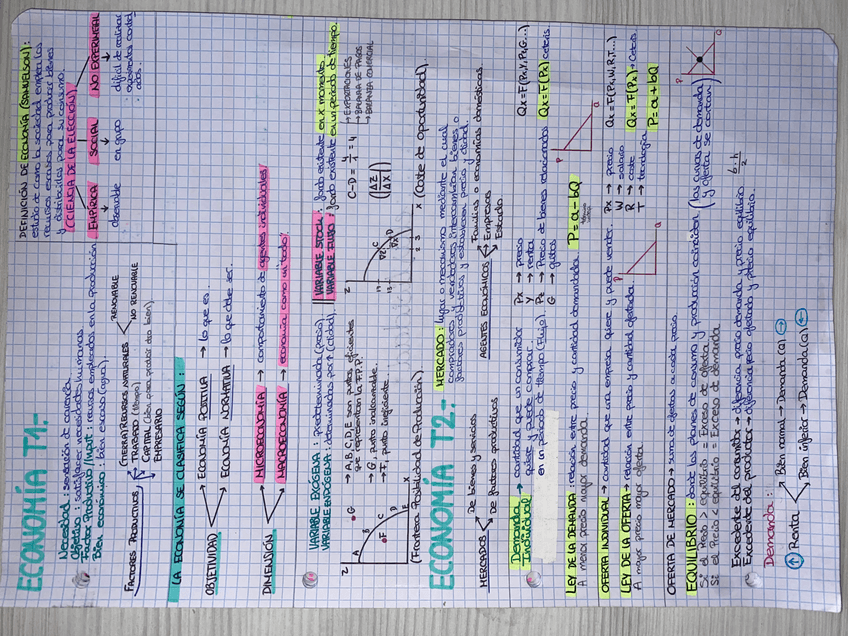 ECONOMÍA T1.-
DEFINICIÓN DE ECONOMÍA (SAMUELSON):
estudio de como la sociedad emplea los
recursos escasos para producir bienes
y distribuirlos para su consumo.
(CIENCIA DE LA ELECCIÓN)
EMPÍRICA SOCIAL NO EXPERIMENTAL
observable en grupo difícil de realizar
experimentos
Necesidad: sensación de carencia.
Objetivo: satisfacer necesidades humanas.
Factor Productivo/Input: recursos empleados en la producción.
Bien económico: bien escaso (agua).
FACTORES PRODUCTIVOS
(TIERRA) RECURSOS NATURALES
RENOVABLE
NO RENOVABLE
TRABAJO (tiempo)
CAPITAL (bien para producir otro bien)
EMPRESARIO
LA ECONOMÍA SE CLASIFICA SEGÚN:
OBJETIVIDAD
ECONOMÍA POSITIVA → lo que es.
ECONOMÍA NORMATIVA → lo que debe ser.
DIMENSIÓN
MICROECONOMÍA → comportamiento de agentes individuales/
MACROECONOMÍA → economía como un "todo".
VARIABLE EXÓGENA: predeterminada (precio)
VARIABLE ENDÓGENA: determinadas por ↑ (ctidad).
VARIABLE STOCK: fondo existente en x momento.
VARIABLE FLUJO: fondo existente en un periodo de tiempo.
Z
G
A
B
C
F
D
E
X
(Frontera Posibilidad de Producción)
→ A, B, C, D, E son puntos eficientes
que representan la F.P.P.
→ G, punto inalcanzable.
→ F, punto ineficiente.
Z
C
D
X (Coste de oportunidad).
C-D = 4/1 = 4
→ EXPORTACIONES
→ BALANZA DE PAGOS
→ BALANZA COMERCIAL
ECONOMÍA T2.-
MERCADO: lugar o mecanismo mediante el cual
compradores y vendedores intercambian bienes o
factores productivos y establecen precio y ctidad.
MERCADOS
De bienes y servicios
De factores productivos
AGENTES ECONÓMICOS
Familias o economías domésticas.
Empresas
Estado.
Demanda Individual → cantidad que un consumidor
quiere y puede comprar
en un periodo de tiempo (Flujo).
Px → precio
Y → renta
Pz → Precio de bienes relacionados
G → gustos
Qx = F(Px, Y, Pz, G...)
Qx = F(Px) Ceteris
LEY DE LA DEMANDA: relación entre precio y cantidad demandada.
A menor precio mayor demanda.
P = a - bQ
P
Q
OFERTA INDIVIDUAL → cantidad que una empresa quiere y puede vender.
LEY DE LA OFERTA → relación entre precio y cantidad ofertada.
A mayor precio mayor oferta.
P
Q
Px → precio
W → salario
R → coste
T → tecnología
Qx = F(Px, W, R, T...)
Qx = F(Px) → Ceteris
P = a + bQ
OFERTA DE MERCADO → suma de ofertas a cada precio.
EQUILIBRIO: donde los planes de consumo y producción coinciden (las curvas de demanda
y oferta se cortan)
Si el Precio > equilibrio = Exceso de oferta.
Si el Precio < equilibrio = Exceso de demanda.
P
Q
Excedente del consumidor → diferencia precio demanda y precio equilibrio
Excedente del productor → diferencia precio ofertado y precio equilibrio.
b·h/2
Demanda:
↑ Renta
Bien normal → Demanda (Q)
Bien inferior → Demanda (Q)